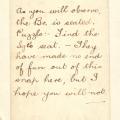 As you will observe,
the Be. is seated.
Puzzle:- Find the
seat. - They
have made no end
of fun out of this
snap here, but I
hope you will not.